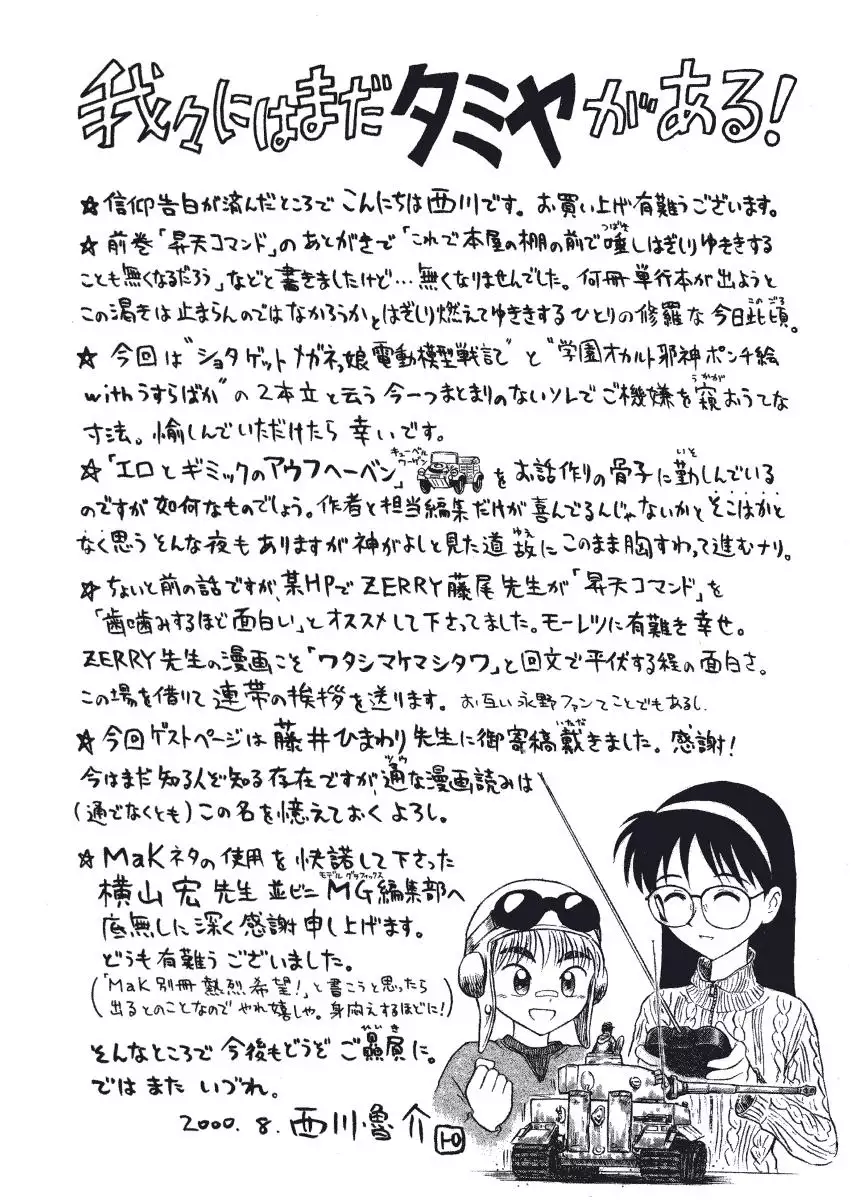 我々にはまだタミヤがある!
☆信仰告白が済んだところでこんにちは西川です。お買い上げ有難うございます。
☆前巻「昇天コマンド」のあとがきで「これで本屋の棚の前で唾しはぎしりゆききする
ことも無くなるだろう」などと書きましたけど…無くなりませんでした。何冊単行本が出ようと
この渇きは止まらんのではなかろうかとはぎしり燃えてゆききするひとりの修羅な今日此頃。
☆今回は"ショタゲットメガネっ娘電動模型戦記"と"学園オカルト邪神ポンチ絵
withうすらばか"の2本立と云う今一つまとまりのないソレでご機嫌を窺おうてな
寸法。愉しんでいただけたら幸いです。
☆「エロとギミックのアウフヘーベン」キューベルワーゲンをお話作りの骨子に勤しんでいる
のですが如何なものでしょう。作者と担当編集だけが喜んでるんじゃないかとそこはかと
なく思うそんな夜もありますが神がよしと見た道故にこのまま胸すわって進むナリ。
☆ちょいと前の話ですが、某HPでZERRY藤尾先生が「昇天コマンド」を
「歯噛みするほど面白い」とオススメして下さってました。モーレツに有難き幸せ。
ZERRY先生の漫画こそ「ワタシマケマシタワ」と回文で平伏する程の面白さ。
この場を借りて連帯の挨拶を送ります。お互い永野ファンてことでもあるし。
☆今回ゲストページは藤井ひまわり先生に御寄稿戴きました。感謝!
今はまだ知る人ぞ知る存在ですが通な漫画読みは
(通でなくとも)この名を憶えておくよろし。
☆MaKネタの使用を快諾して下さった
横山宏先生並ビニMG編集部へ
底無しに深く感謝申し上げます。
どうも有難うございました。
(「MaK別冊熱烈希望!」と書こうと思ったら
出るとのことなのでやれ嬉しや。身悶えするほどに!)
そんなところで今後もどうぞご贔屓に。
ではまたいづれ。
2000.8.西川魯介